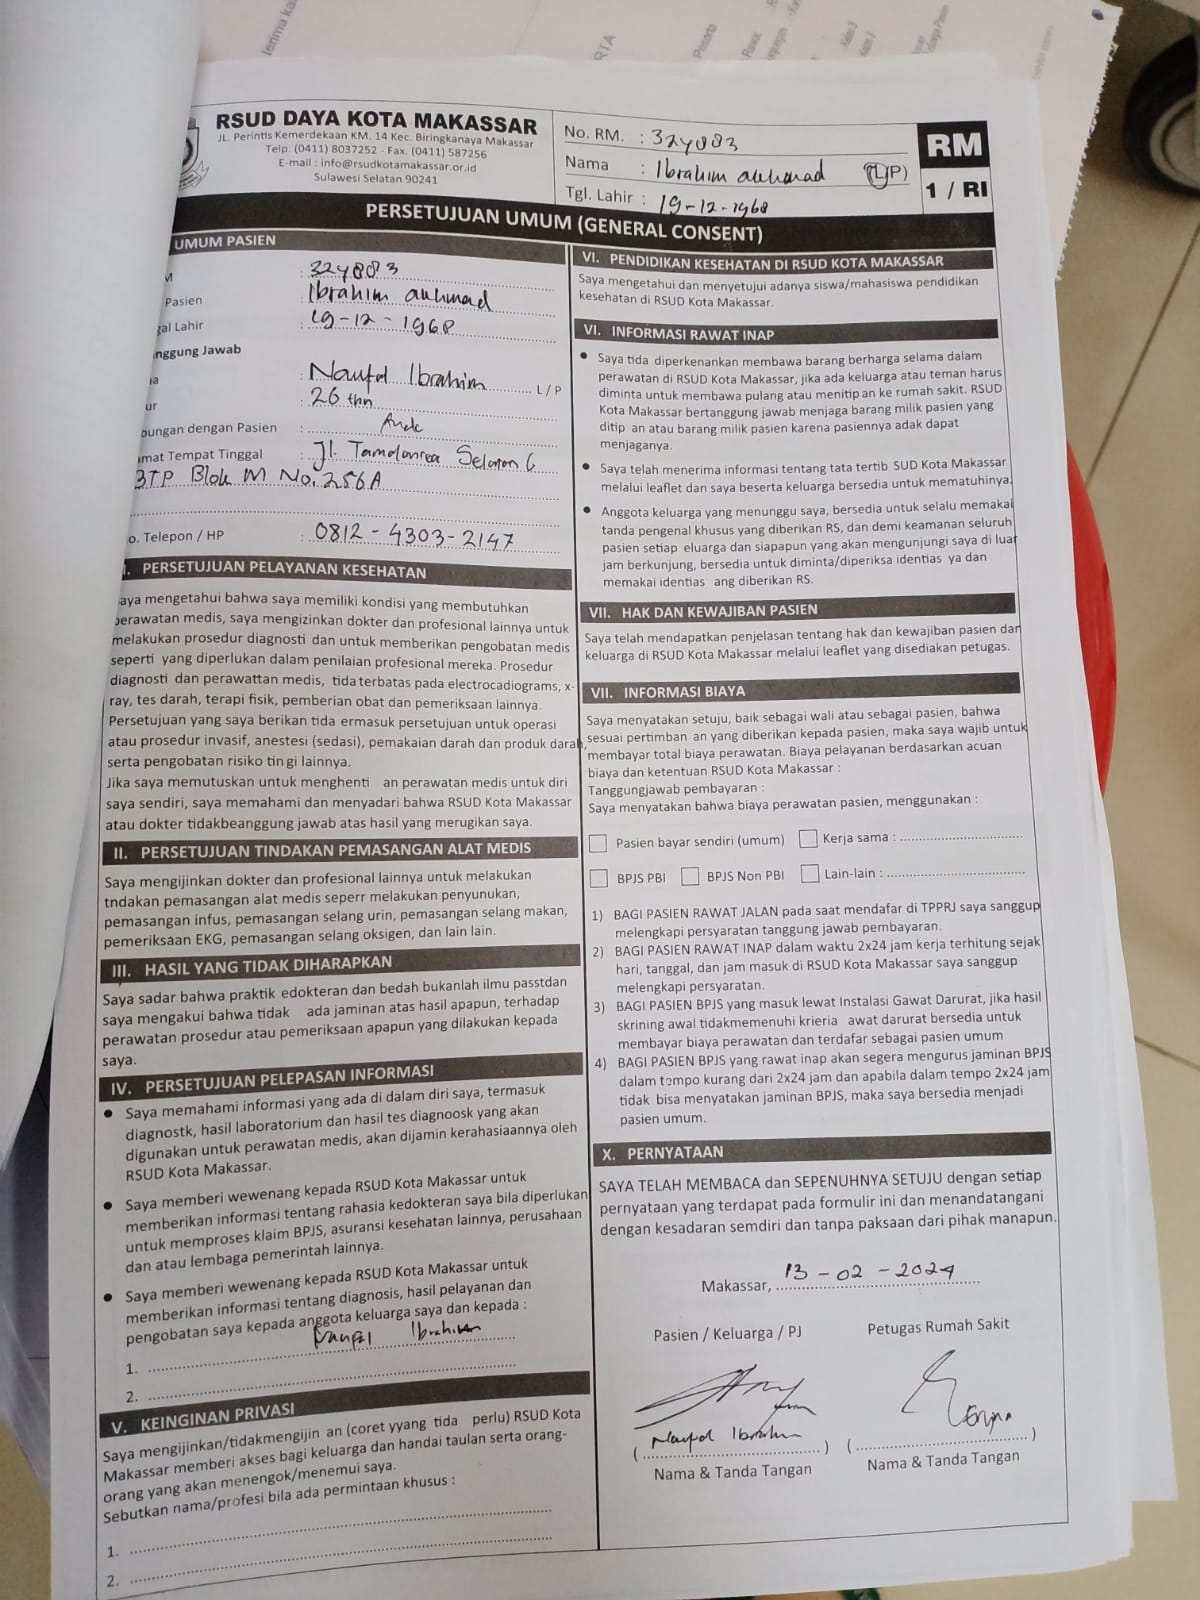 RSUD DAYA KOTA MAKASSAR
JL. Perintis Kemerdekaan KM. 14 Kec. Biringkanaya Makassar
Telp. (0411) 8037252 - Fax. (0411) 587256
E-mail : info@rsudkotamakassar.or.id
Sulawesi Selatan 90241
No. RM. : 324883
Nama : Ibrahim akhmad (L/P)
Tgl. Lahir : 19-12-1968
RM
1 / RI
PERSETUJUAN UMUM (GENERAL CONSENT)
UMUM PASIEN
M : 324883
Pasien : Ibrahim akhmad
gal Lahir : 19-12-1968
nggung Jawab
a : Naufal Ibrahim L / P
ur : 26 thn
bungan dengan Pasien : Anak
mat Tempat Tinggal : Jl. Tamalanrea Selatan 6
BTP Blok M No. 256A
o. Telepon / HP : 0812-4303-2147
I. PERSETUJUAN PELAYANAN KESEHATAN
aya mengetahui bahwa saya memiliki kondisi yang membutuhkan
perawatan medis, saya mengizinkan dokter dan profesional lainnya untuk
melakukan prosedur diagnosti dan untuk memberikan pengobatan medis
seperti yang diperlukan dalam penilaian profesional mereka. Prosedur
diagnosti dan perawattan medis, tida terbatas pada electrocadiograms, x-
ray, tes darah, terapi fisik, pemberian obat dan pemeriksaan lainnya.
Persetujuan yang saya berikan tida ermasuk persetujuan untuk operasi
atau prosedur invasif, anestesi (sedasi), pemakaian darah dan produk darah,
serta pengobatan risiko tin gi lainnya.
Jika saya memutuskan untuk menghenti an perawatan medis untuk diri
saya sendiri, saya memahami dan menyadari bahwa RSUD Kota Makassar
atau dokter tidakbeanggung jawab atas hasil yang merugikan saya.
II. PERSETUJUAN TINDAKAN PEMASANGAN ALAT MEDIS
Saya mengijinkan dokter dan profesional lainnya untuk melakukan
tndakan pemasangan alat medis seperr melakukan penyunukan,
pemasangan infus, pemasangan selang urin, pemasangan selang makan,
pemeriksaan EKG, pemasangan selang oksigen, dan lain lain.
III. HASIL YANG TIDAK DIHARAPKAN
Saya sadar bahwa praktik edokteran dan bedah bukanlah ilmu passtdan
saya mengakui bahwa tidak ada jaminan atas hasil apapun, terhadap
perawatan prosedur atau pemeriksaan apapun yang dilakukan kepada
saya.
IV. PERSETUJUAN PELEPASAN INFORMASI
• Saya memahami informasi yang ada di dalam diri saya, termasuk
diagnostk, hasil laboratorium dan hasil tes diagnoosk yang akan
digunakan untuk perawatan medis, akan dijamin kerahasiaannya oleh
RSUD Kota Makassar.
• Saya memberi wewenang kepada RSUD Kota Makassar untuk
memberikan informasi tentang rahasia kedokteran saya bila diperlukan
untuk memproses klaim BPJS, asuransi kesehatan lainnya, perusahaan
dan atau lembaga pemerintah lainnya.
• Saya memberi wewenang kepada RSUD Kota Makassar untuk
memberikan informasi tentang diagnosis, hasil pelayanan dan
pengobatan saya kepada anggota keluarga saya dan kepada :
1. Naufal Ibrahim
2.
V. KEINGINAN PRIVASI
Saya mengijinkan/tidakmengijin an (coret yyang tida perlu) RSUD Kota
Makassar memberi akses bagi keluarga dan handai taulan serta orang-
orang yang akan menengok/menemui saya.
Sebutkan nama/profesi bila ada permintaan khusus :
1.
2.
VI. PENDIDIKAN KESEHATAN DI RSUD KOTA MAKASSAR
Saya mengetahui dan menyetujui adanya siswa/mahasiswa pendidikan
kesehatan di RSUD Kota Makassar.
VI. INFORMASI RAWAT INAP
• Saya tida diperkenankan membawa barang berharga selama dalam
perawatan di RSUD Kota Makassar, jika ada keluarga atau teman harus
diminta untuk membawa pulang atau menitip an ke rumah sakit. RSUD
Kota Makassar bertanggung jawab menjaga barang milik pasien yang
ditip an atau barang milik pasien karena pasiennya adak dapat
menjaganya.
• Saya telah menerima informasi tentang tata tertib SUD Kota Makassar
melalui leaflet dan saya beserta keluarga bersedia untuk mematuhinya.
• Anggota keluarga yang menunggu saya, bersedia untuk selalu memakai
tanda pengenal khusus yang diberikan RS, dan demi keamanan seluruh
pasien setiap eluarga dan siapapun yang akan mengunjungi saya di luar
jam berkunjung, bersedia untuk diminta/diperiksa identias ya dan
memakai identias ang diberikan RS.
VII. HAK DAN KEWAJIBAN PASIEN
Saya telah mendapatkan penjelasan tentang hak dan kewajiban pasien dan
keluarga di RSUD Kota Makassar melalui leaflet yang disediakan petugas.
VII. INFORMASI BIAYA
Saya menyatakan setuju, baik sebagai wali atau sebagai pasien, bahwa
sesuai pertimban an yang diberikan kepada pasien, maka saya wajib untuk
membayar total biaya perawatan. Biaya pelayanan berdasarkan acuan
biaya dan ketentuan RSUD Kota Makassar :
Tanggungjawab pembayaran :
Saya menyatakan bahwa biaya perawatan pasien, menggunakan :
Pasien bayar sendiri (umum) Kerja sama :
BPJS PBI BPJS Non PBI Lain-lain :
1) BAGI PASIEN RAWAT JALAN pada saat mendafar di TPPRJ saya sanggup
melengkapi persyaratan tanggung jawab pembayaran.
2) BAGI PASIEN RAWAT INAP dalam waktu 2x24 jam kerja terhitung sejak
hari, tanggal, dan jam masuk di RSUD Kota Makassar saya sanggup
melengkapi persyaratan.
3) BAGI PASIEN BPJS yang masuk lewat Instalasi Gawat Darurat, jika hasil
skrining awal tidakmemenuhi krieria awat darurat bersedia untuk
membayar biaya perawatan dan terdafar sebagai pasien umum
4) BAGI PASIEN BPJS yang rawat inap akan segera mengurus jaminan BPJS
dalam tempo kurang dari 2x24 jam dan apabila dalam tempo 2x24 jam
tidak bisa menyatakan jaminan BPJS, maka saya bersedia menjadi
pasien umum.
X. PERNYATAAN
SAYA TELAH MEMBACA dan SEPENUHNYA SETUJU dengan setiap
pernyataan yang terdapat pada formulir ini dan menandatangani
dengan kesadaran semdiri dan tanpa paksaan dari pihak manapun.
Makassar, 13-02-2024
Pasien / Keluarga / PJ Petugas Rumah Sakit
( Naufal Ibrahim ) ( )
Nama & Tanda Tangan Nama & Tanda Tangan